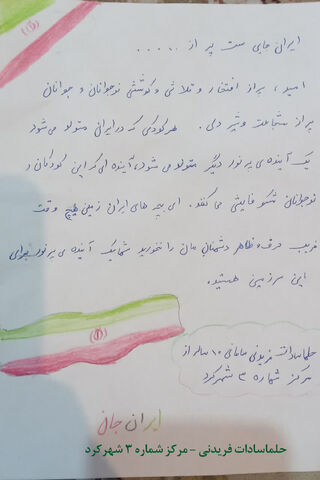 ایران جایی ست پر از .....
امید، پر از افتخار و تلاش و کوشش نوجوانان و جوانان
پر از شجاعت و شیر دلی. هر کودکی که در ایران متولد می شود
یک آینده ی پر نور دیگر متولد می شود، آینده ای که این کودکان و
نوجوانان شکوفایش می کنند. ای بچه های ایران زمین هیچ وقت
فریب حرف و ظاهر دشمنان مان را نخورید شما یک آینده ی پر نور برای
این سرزمین هستید.
حلما سادات فریدنی مامانی ۱۰ ساله از
مرکز شماره ۳ شهرکرد
ایران جان
حلماسادات فریدنی - مرکز شماره ۳ شهرکرد